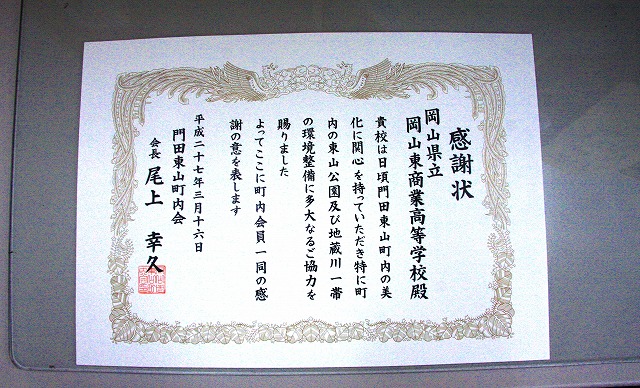 感謝状
岡山県立
岡山東商業高等学校殿
貴校は日頃門田東山町内の美
化に関心を持っていただき特に町
内の東山公園及び地蔵川一帯
の環境整備に多大なるご協力を
賜りました
よってここに町内会員一同の感
謝の意を表します
平成二十七年三月十六日
門田東山町内会
会長 尾上 幸久